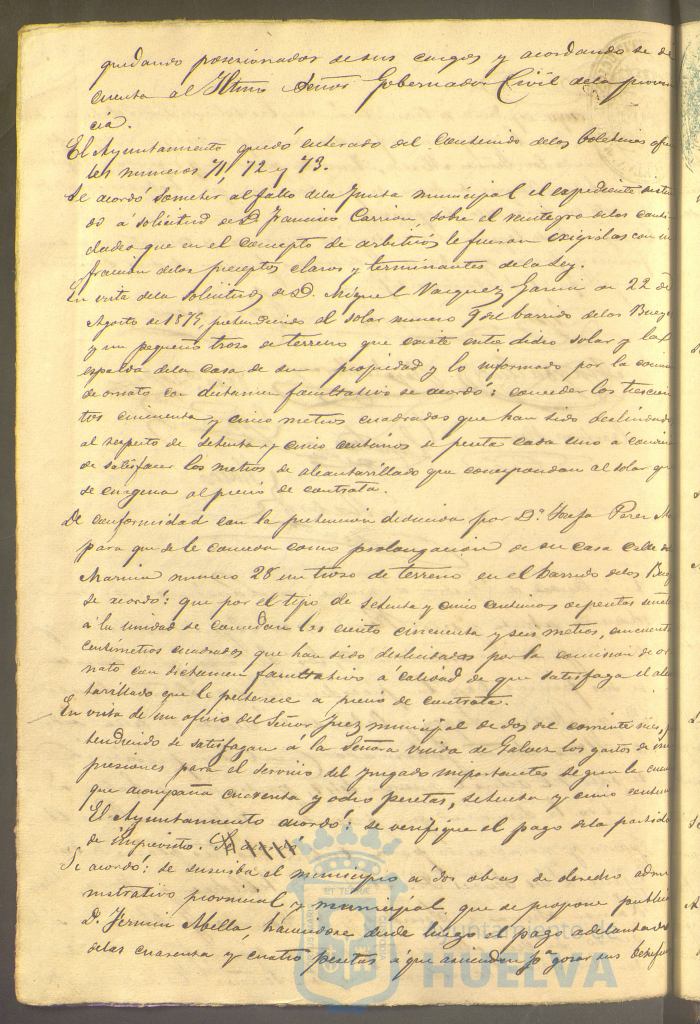 quedando posesionados de sus cargos y acordando se de
cuenta al Iltmo Señor Gobernador Civil de la provin
cia.
El Ayuntamiento quedó enterado del contenido de los boletines ofici
les numeros 71, 72 y 73.
Se acordó someter al fallo de la Junta municipal el expediente instru
do á solicitud de D. Francisco Carrion, sobre el reintegro de las canti
dades que en el concepto de arbitrios le fueron exigidas con in
fraccion de los preceptos claros y terminantes de la Ley.
En vista de la solicitud de D. Miguel Vazquez Garcia de 22 de
Agosto de 1879, pretendiendo el solar numero 9 del barrido de las
y un pequeño trozo de terreno que existe entre dicho solar y la
espalda de la casa de su propiedad y lo informado por la comision
de ornato con dictamen facultativo se acordó: conceder los trescien
tos cincuenta y cinco metros cuadrados que han sido deslindados
al respeto de setenta y cinco centimos de peseta cada uno á condicion
de satisfacer los metros de alcantarillado que correspondan al solar que
se enagena al precio de contrata.
De conformidad con la pretension deducida por D.ª Josefa Perez
para que se le conceda como prolongacion de su casa calle de
Marina numero 28 un trozo de terreno en el barrido de los
se acordó: que por el tipo de setenta y cinco centimos de peseta
á la unidad se concedan los ciento cincuenta y seis metros, cincuenta
centimetros cuadrados que han sido deslindados por la comision de or
nato con dictamen facultativo á calidad de que satisfaga el alcan
tarillado que le pertenece a precio de contrata.
En vista de un oficio del Señor Juez municipal de dos del corriente mes,
tendiendo se satisfagan á la Señora Viuda de Galvez los gastos de im
presiones para el servicio del juzgado importantes segun la cuenta
que acompaña cuarenta y ocho pesetas, setenta y cinco centimos
El Ayuntamiento acordó: se verifique el pago de la partida
de imprevisto.
Se acordó: se suscriba al municipio á dos obras de derecho admi
nistrativo provincial y municipal que se propone publicar
D. Fermin Abella, haciendose desde luego el pago adelantado
de las cuarenta y cuatro pesetas á que ascienden p.ª gozar sus
Ayuntamiento de
HUELVA